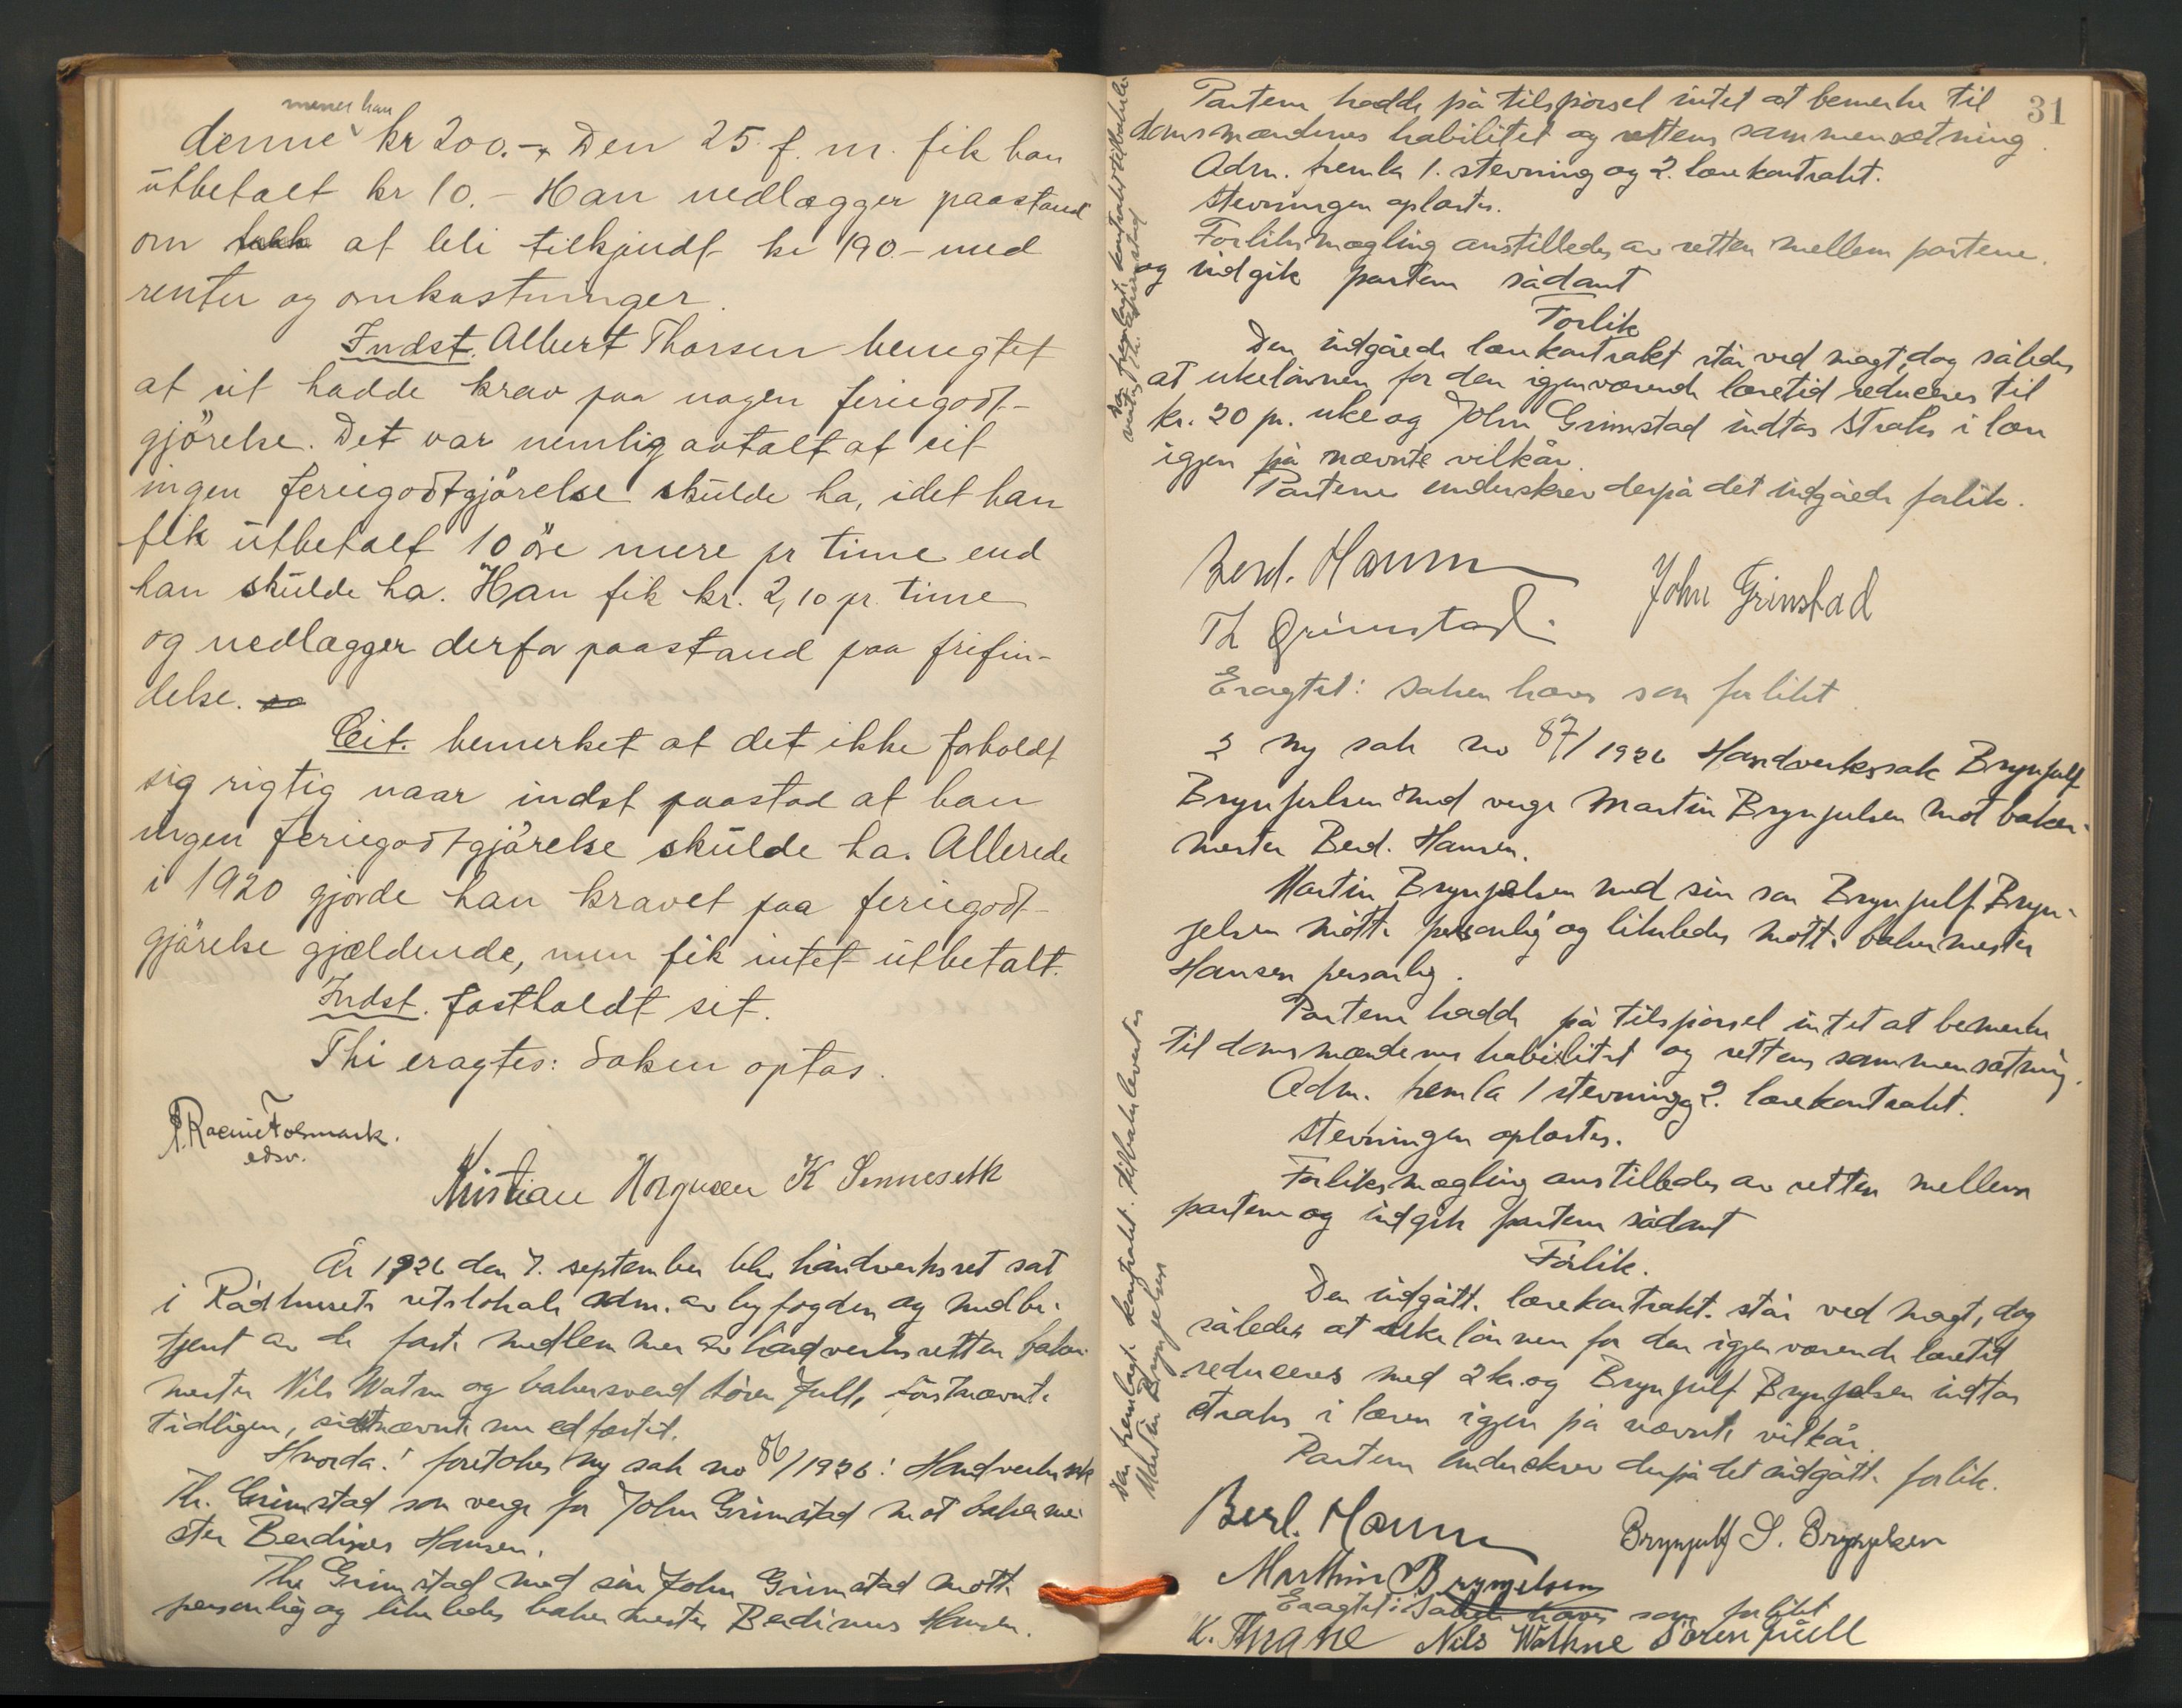 mener han
denne kr 200.- Den 25. f. m. fik han
utbetalt kr 10.- Han nedlægger paastand
om at bli tilkjendt kr 190.- med
renter og omkostninger.
Indst. Albert Thorsen benegtet
at cit hadde krav paa nogen feriegodt-
gjörelse. Det var nemlig avtalt at cit
ingen feriegodtgjörelse skulde ha, idet han
fik utbetalt 10 öre mere pr time end
han skulde ha. Han fik kr. 2,10 pr. time
og nedlægger derfor paastand paa frifin-
delse.
Cit. bemerket at det ikke forholdt
sig rigtig naar indst paastod at han
ingen feriegodtgjörelse skulde ha. Allerede
i 1920 gjorde han kravet paa feriegodt-
gjörelse gjældende, men fik intet utbetalt.
Indst. fastholdt sit.
Thi eragtes: Saken optas.
edsv.
Kristian K Sennesetk
År 1926 den 7. september blev håndverksret sat
i Rådhusets retslokale adm. av byfogden og medbe-
tjent av de faste medlemmer av håndverksretten baker
mester Nils Watne og bakersvend Sören Jull, förstnævnte
tidligere, sidstnævnte nu edfæstet.
Hvorda: foretokes ny sak no 86/1926: Handverkssak
Th. Grimstad som verge for John Grimstad mot bakerme-
ster Berdines Hansen.
Th. Grimstad med sin John Grimstad mötte
personlig og likeledes bakermester Bedinus Hansen.
31
Partene hadde på tilspörsel intet at bemerke til
domsmændenes habilitet og rettens sammensætning.
Adm. fremla 1. stevning og 2. lærekontrakt.
Stevningen oplæstes.
Forliksmægling anstilledes av retten mellem partene.
og indgik partene sådant
Forlik
Den indgåede lærekontrakt står ved magt, dog således
at ukelönnen for den igjenværende læretid reduceres til
kr. 20 pr. uke og John Grimstad indtas straks i lære
igjen på nævnte vilkår.
Partene underskrev derpå det indgåede forlik.
Berd. Hansen
John Grimstad
Th Grimstad.
Eragtet: Saken hæves som forlikt
2 ny sak no 87/1926 Handverkssak Brynjulf
Brynjulsen med verge Martin Brynjulsen mot baker-
mester Berd. Hansen.
Martin Brynjelsen med sin søn Brynjulf Bryn-
jelsen mötte personlig og likeledes mötte bakermester
Hansen personlig.
Partene hadde på tilspörsel intet at bemerke
til domsmændenes habilitet og rettens sammensætning.
Adm. fremla 1 stevning og 2. lærekontrakt.
Stevningen oplæstes.
Forliksmægling anstilledes av retten mellem
partene og indgik partene sådant
Forlik.
Den indgåtte lærekontrakt står ved magt, dog
således at ukelönnen for den igjenværende læretid
reduceres med 2 kr. og Brynjulf Brynjelsen indtas
straks i læren igjen på nævnte vilkår.
Partene underskrev derpå det indgåtte forlik.
Berd. Hansen
Brynjulf S. Brynjelsen
Marthin Brynjelsen
Eragtet: Saken hæves som forlikt
K. Thrane Nils Wathne Sören Juell
Den fremlagte kontrakt tilbakele-
vertes Th. Grimstad
Den fremlagte kontrakt tilbakelevertes
Martin Brynjelsen